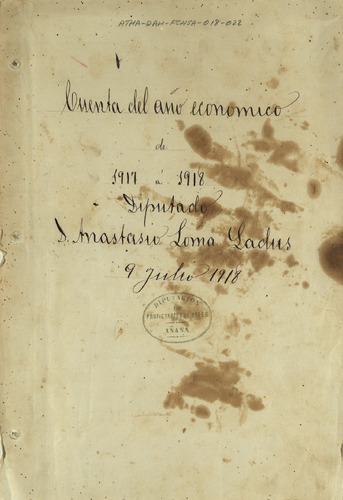 ATHA-DAH-FCNSA-018-022
Cuenta del año economico
de
1917 a 1918
Diputado
D. Anastasio Loma Ladus
9 Julio 1918
DIPUTACIÓN
PROPIETARIOS DE
AÑANA